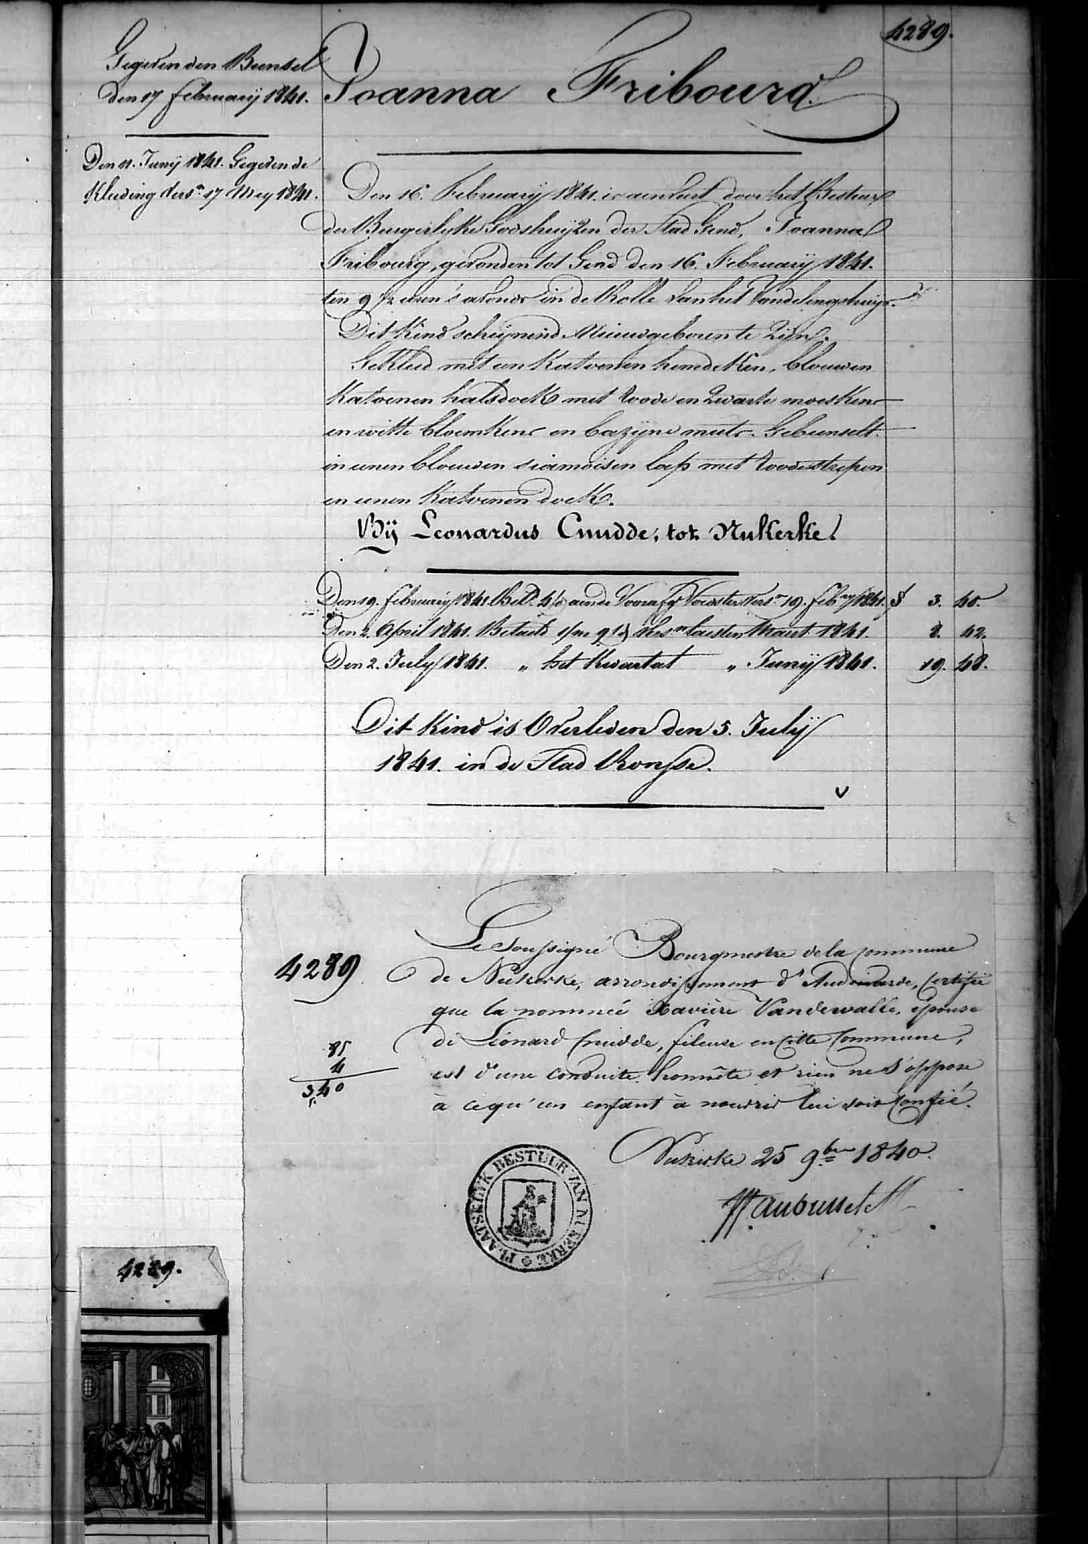 4289.
Gegeven den Bunsel
Den 17 february 1841.
Den 11. Juny 1841. Gegeven de
Kleeding verso 17 Mey 1841.
Joanna Fribourg
Den 16. February 1841. is aenveert door het Bestuer
der Burgerlyke Godshuyzen der Stad Gend, Joanna
Fribourg, gevonden tot Gend den 16. February 1841.
ten 9 ½ uren s'avonds in de Rolle van het Vondelingshuys.
Dit Kind schynende Nieuwgeboren te Zyn.
Gekleed met een Katoenen hemdeken, blouwen
Katoenen halsdoek met roode en zwarte moeskens
en witte bloemkens en bazyne muts. Gebunselt
in eenen blouwen siamoisen lap met roode strepen
en eenen Katoenen doek.
By Leonardus Cnudde, tot Nukerke.
Den 19. february 1841. Bet. aen de Voedster 19. feb. 1841. 3. 40.
Den 2. April 1841. Betaeld laesten Maert 1841. 8. 42.
Den 2. July 1841. " het Kwartael " Juny 1841. 19. 48.
Dit Kind is Overleden den 5. July
1841. in de Stad Ronsse.
4289
85
4
3,40
Le Soussigné Bourgmestre de la commune
de Nukerke, arrondissement d'Audenarde, Certifie
que la nommée Xavière Vandewalle, épouse
de Léonard Cnudde, fileuse en cette Commune,
est d'une conduite honnête et rien ne s'oppose
à ce qu'un enfant à nourrir lui soit Confié.
Nukerke 25 9bre 1840.
PLAATSELYK BESTUUR VAN NUKERKE
4289.